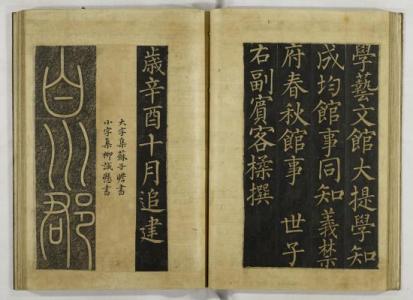 學藝文館大提學知
成均館事同知義禁
府春秋館事 世子
右副賓客 撰
歲辛酉十月追建
大字集蘇子瞻書
小字集柳誠懸書
白川郡